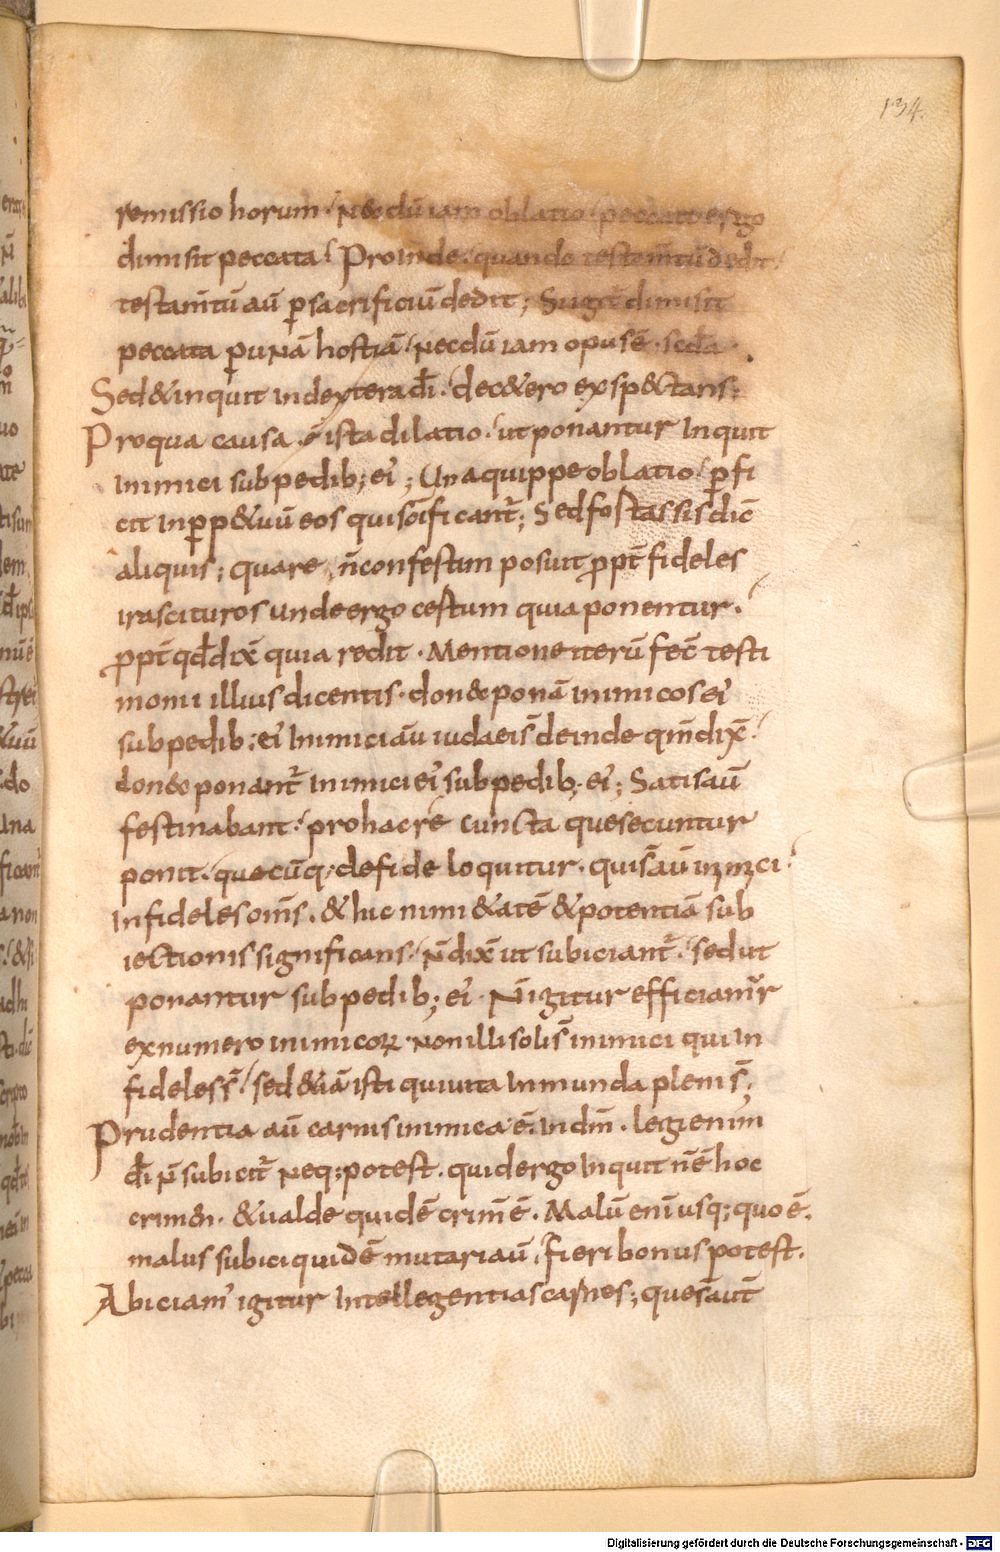 134.
remissio horum · Necdū iam oblatio · peccati ergo
dimisit peccata · Proinde · quando testam̄tū dedit ·
testam̄tū aū p̱ sacrificiū dedit ; Si igit̄ dimisit
peccata p̱ unā hostiā · necdū iam opus ē ·
Sed& inquit in dextera dī · dec&ero exsp&tans ;
Pro qua causa ē ista dilatio · ut ponantur Inquit
inimici sub pedib; ei' ; Una quippe oblatio · p̱fi
cit in p̱p&uū eos qui sc̄ificant̄ ; Sed fostassis dic̄
aliquis ; quare n̄ confestim posuit ꝓpt̄ fideles
irascituros unde ergo cestum quia ponentur ·
ꝓpt̄ qd̄ dix̄ quia redit · Mentione iterū fec̄ testi
monii illius dicentis · don&c ponā inimicos ei'
sub pedib; ei' Inimici aū iudaei s̄ deinde qm̄ dix̄ ·
don&c ponant̄ inimici ei' sub pedib; ei' ; Satis aū
festinabant · pro hac re cuncta que secuntur
ponit · quecūq; de fide loquitur · qui s̄ aū inimici ·
Infideles om̄s · & hic nimi&atē & potentiā sub
iectionis significans · n̄ dix̄ ut subiciant̄ · sed ut
ponantur sub pedib; ei' · N̄ igitur efficiam'r
ex numero inimicoꝝ · non illi soli s̄ inimici qui In
fideles s̄ · sed &iā isti qui uita Inmunda pleni s̄ ;
Prudentia aū carnis inimica ē · in dm̄ · legi enim
dī n̄ subicit̄ neq; potest · quid ergo Inquit n̄ ē hoc
crim̄ · & ualde quidē crim̄ ē · Malū enī usq; quo ē ·
malus subici quidē mutari aū · fieri bonus potest ·
Abiciam' igitur Intellegentias carnes ; que s̄ aut̄
Digitalisierung gefördert durch die Deutsche Forschungsgemeinschaft - DFG